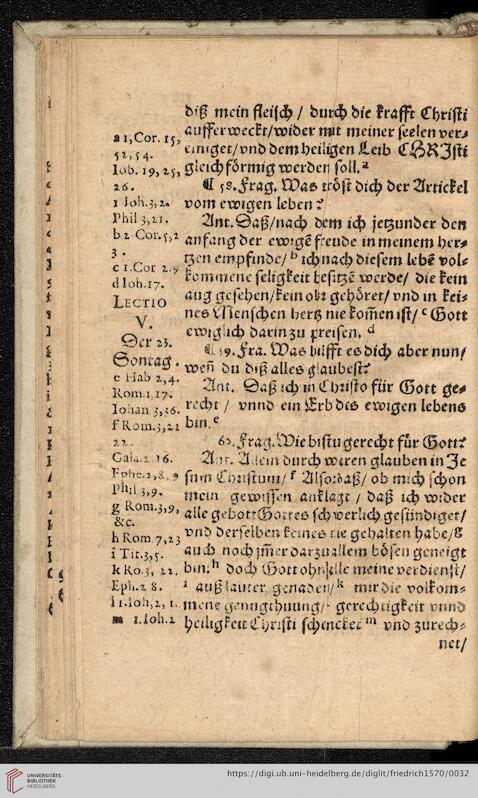 diß mein fleisch / durch die krafft Christi
aufferweckt/wider mit meiner seelen ver-
einiget/vnd dem heiligen Leib CHRJsti
gleichförmig werden soll.ᵃ
¶ 58. Frag. Was tröst dich der Artickel
vom ewigen leben?
Ant. Daß/nach dem ich jetzunder den
anfang der ewigē freude in meinem her-
tzen empfinde/ᵇ ich nach diesem lebē vol-
kommene seligkeit besitzē werde/ die kein
aug gesehen/kein ohr gehöret/ vnd in kei-
nes Menschen hertz nie kom̄en ist/ᶜ Gott
ewiglich darin zu preisen.ᵈ
¶ 59. Fra. Was hilfft es dich aber nun/
wen̄ du diß alles glaubest?
Ant. Daß ich in Christo für Gott ge-
recht / vnnd ein Erb des ewigen lebens
bin.ᵉ
60. Frag. Wie bistu gerecht für Gott?
Ant. Allein durch waren glauben in Je
sum Christum/ᶠ Also: daß/ ob mich schon
mein gewissen anklagt / daß ich wider
alle gebott Gottes schwerlich gesündiget/
vnd derselben keines nie gehalten habe/ᵍ
auch noch jm̄er dar zu allem bösen geneigt
bin:ʰ doch Gott ohn alle meine verdienst/
ⁱ auß lauter genaden/ᵏ mir die volkom-
mene genugthuung/ˡ gerechtigkeit vnnd
heiligkeit Christi schencket ᵐ vnd zurech-
net/
a 1,Cor. 15,
52, 54.
Iob. 19, 25,
26.
1 Ioh.3,2.
Phil 3,21.
b 2 Cor.5,2
3.
c 1.Cor 2.9
d Ioh.17.
LECTIO
V.
Der 23.
Sontag.
e Hab 2,4.
Rom.1 17.
Iohan 3,36.
f Rom.3,21
22.
Gala.2 16.
Ephe.2,8,9
Phil 3,9.
g Rom.3,9,
&c.
h Rom 7,23
i Tit.3,5.
k Ro.3, 22.
Eph.2 8.
l 1.Ioh,2, 1.
m 1.Ioh.2
UNIVERSITÄTS-
BIBLIOTHEK
HEIDELBERG
https://digi.ub.uni-heidelberg.de/diglit/friedrich1570/0032